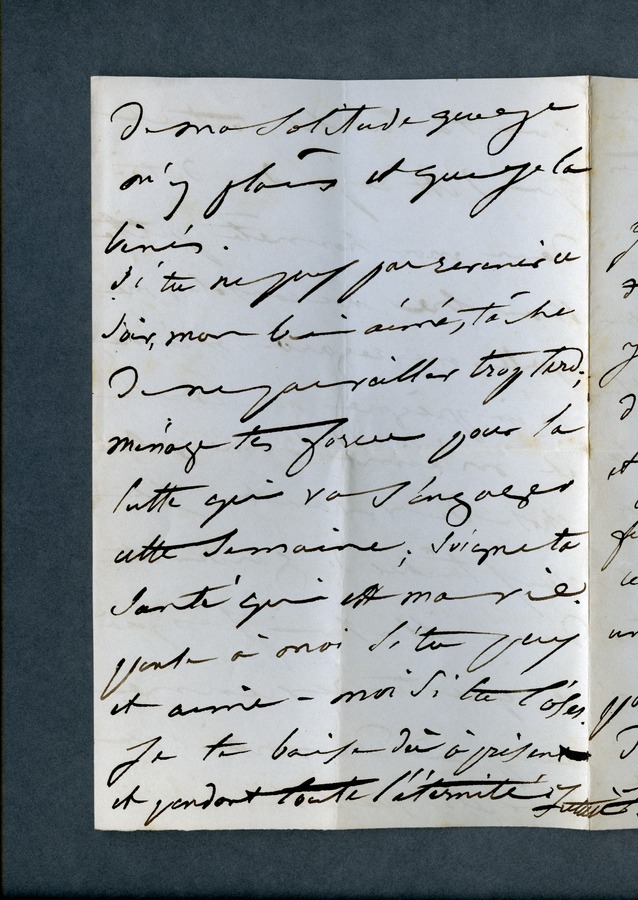 de ma solitude que je
m'y plais et que je la
bénis.
Si tu ne peux pas revenir ce
soir, mon bien aimé, tâche
de ne pas veiller trop tard;
ménage tes forces pour la
lutte qui va s'engager
cette semaine; soigne ta
santé qui est ma vie.
pense à moi si tu peux
et aime-moi si tu l'oses.
Je te baise dès à présent
et pendant toute l'éternité